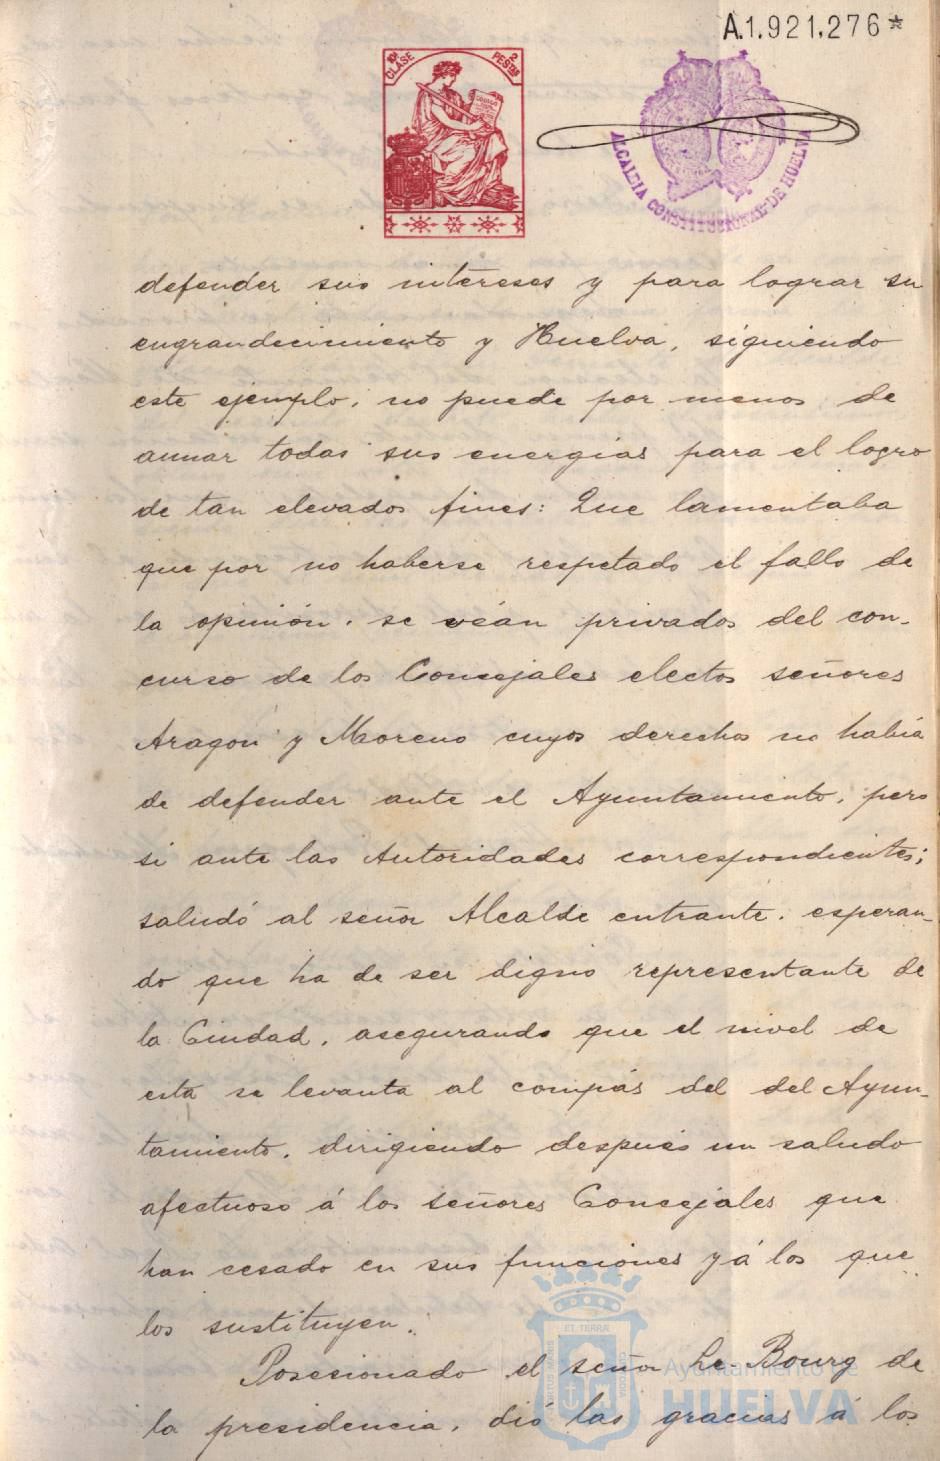 A.1.921,276*
10ª CLASE 2 PESTAS
ALCALDIA CONSTITUCIONAL DE HUELVA
defender sus intereses y para lograr su
engrandecimiento y Huelva, siguiendo
este ejemplo, no puede por menos de
aunar todas sus energías para el logro
de tan elevados fines: Que lamentaba
que por no haberse respetado el fallo de
la opinión, se veán privados del con-
curso de los Concejales electos señores
Aragon y Moreno cuyos derechos no había
de defender ante el Ayuntamiento, pero
si ante las Autoridades correspondientes;
saludó al señor Alcalde entrante, esperan-
do que ha de ser digno representante de
la Ciudad, asegurando que el nivel de
esta se levanta al compás del del Ayun-
tamiento, dirigiendo despues un saludo
afectuoso á los señores Concejales que
han cesado en sus funciones y á los que
los sustituyen.
Posesionado el señor Le-Bourg de
la presidencia, dió las gracias á los
ET TERRÆ
Ayuntamiento de
HUELVA